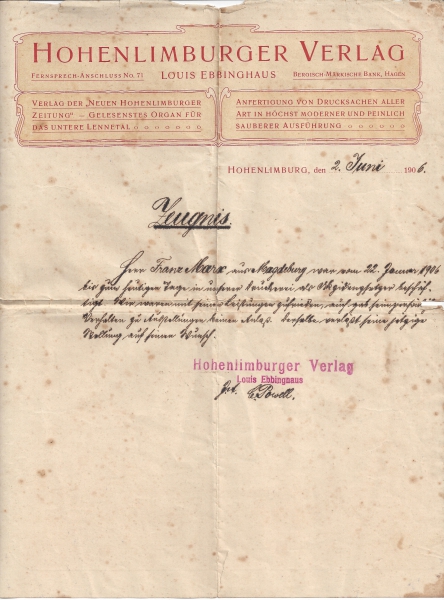 HOHENLIMBURGER VERLAG
FERNSPRECH-ANSCHLUSS No. 71 LOUIS EBBINGHAUS BERGISCH-MÄRKISCHE BANK, HAGEN
VERLAG DER „NEUEN HOHENLIMBURGER
ZEITUNG“ – GELESENSTES ORGAN FÜR
DAS UNTERE LENNETAL
ANFERTIGUNG VON DRUCKSACHEN ALLER
ART IN HÖCHST MODERNER UND PEINLICH
SAUBERER AUSFÜHRUNG
HOHENLIMBURG, den 2. Juni 1906.
Zeugnis.
Herr Franz Marx aus Magdeburg war vom 22. Januar 1906
bis zum heutigen Tage in unserer Druckerei als Akzidenzsetzer beschäf-
tigt. Wir waren mit seinen Leistungen zufrieden, auch gab sein
Verhalten zu Ausstellungen keinen Anlaß. Derselbe verläßt seine jetzige
Stellung auf seinen Wunsch.
Hohenlimburger Verlag
Louis Ebbinghaus
Powell.